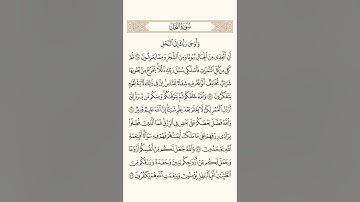 سُورَةُ النَّحْلِ
وَأَوْحَىٰ رَبُّكَ إِلَى ٱلنَّحْلِ
أَنِ ٱتَّخِذِى مِنَ ٱلْجِبَالِ بُيُوتًا وَمِنَ ٱلشَّجَرِ وَمِمَّا يَعْرِشُونَ ۝ ثُمَّ
كُلِى مِن كُلِّ ٱلثَّمَرَٰتِ فَٱسْلُكِى سُبُلَ رَبِّكِ ذُلُلًا يَخْرُجُ مِنۢ بُطُونِهَا
شَرَابٌ مُّخْتَلِفٌ أَلْوَٰنُهُۥ فِيهِ شِفَآءٌ لِّلنَّاسِ إِنَّ فِى ذَٰلِكَ لَـَٔايَةً لِّقَوْمٍ
يَتَفَكَّرُونَ ۝ وَٱللَّهُ خَلَقَكُمْ ثُمَّ يَتَوَفَّىٰكُمْ وَمِنكُم مَّن يُرَدُّ إِلَىٰٓ
أَرْذَلِ ٱلْعُمُرِ لِكَىْ لَا يَعْلَمَ بَعْدَ عِلْمٍ شَيْـًٔا إِنَّ ٱللَّهَ عَلِيمٌ قَدِيرٌ ۝
وَٱللَّهُ فَضَّلَ بَعْضَكُمْ عَلَىٰ بَعْضٍ فِى ٱلرِّزْقِ فَمَا ٱلَّذِينَ فُضِّلُوا۟
بِرَآدِّى رِزْقِهِمْ عَلَىٰ مَا مَلَكَتْ أَيْمَٰنُهُمْ فَهُمْ فِيهِ سَوَآءٌ أَفَبِنِعْمَةِ
ٱللَّهِ يَجْحَدُونَ ۝ وَٱللَّهُ جَعَلَ لَكُم مِّنْ أَنفُسِكُمْ أَزْوَٰجًا
وَجَعَلَ لَكُم مِّنْ أَزْوَٰجِكُم بَنِينَ وَحَفَدَةً وَرَزَقَكُم مِّنَ
ٱلطَّيِّبَٰتِ أَفَبِٱلْبَٰطِلِ يُؤْمِنُونَ وَبِنِعْمَتِ ٱللَّهِ هُمْ يَكْفُرُونَ ۝